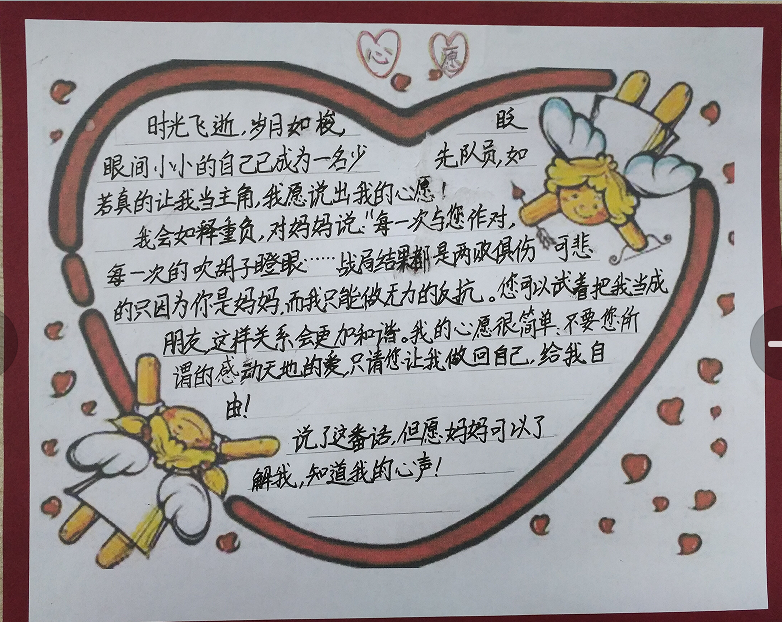 心愿
时光飞逝,岁月如梭, 眨
眼间小小的自己已成为一名少 先队员,如
若真的让我当主角,我愿说出我的心愿!
我会如释重负,对妈妈说:"每一次与您作对,
每一次的吹胡子瞪眼……战局结果都是两败俱伤 可悲
的只因为你是妈妈,而我只能做无力的反抗。您可以试着把我当成
朋友,这样关系会更加和谐。我的心愿很简单:不要您所
谓的感动天地的爱,只请您让我做回自己,给我自
由!
说了这番话,但愿妈妈可以了
解我,知道我的心声!